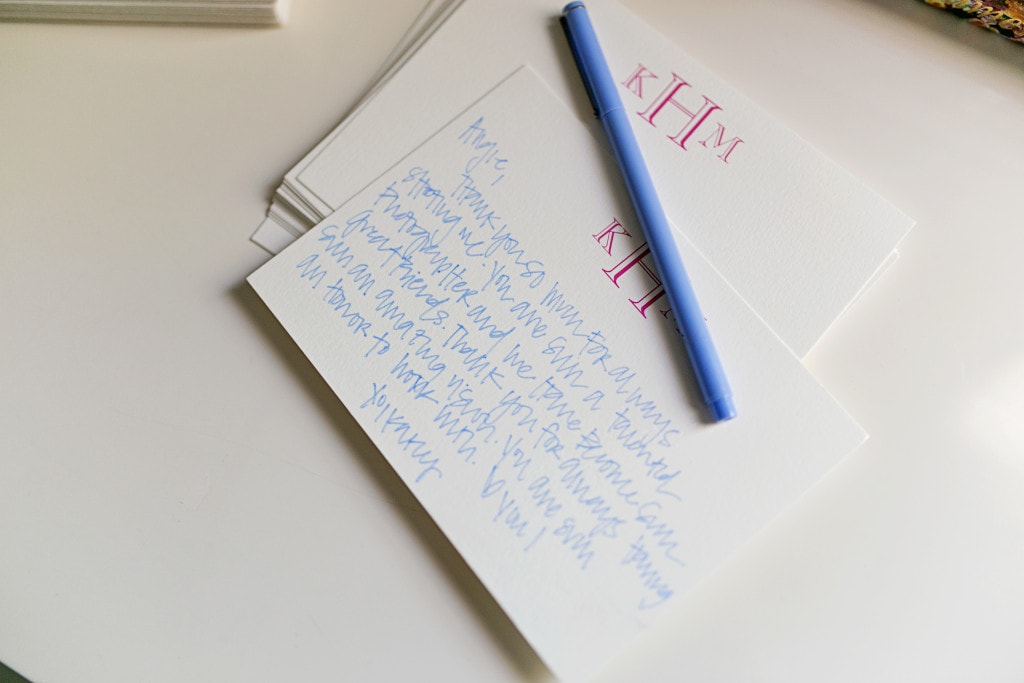 KHM
KHM
Angie,
Thank you so much for always
shooting me. You are such a talented
photographer and we have become such
great friends. Thank you for always
such an amazing vision. You are such
an honor to work with. you!
xo